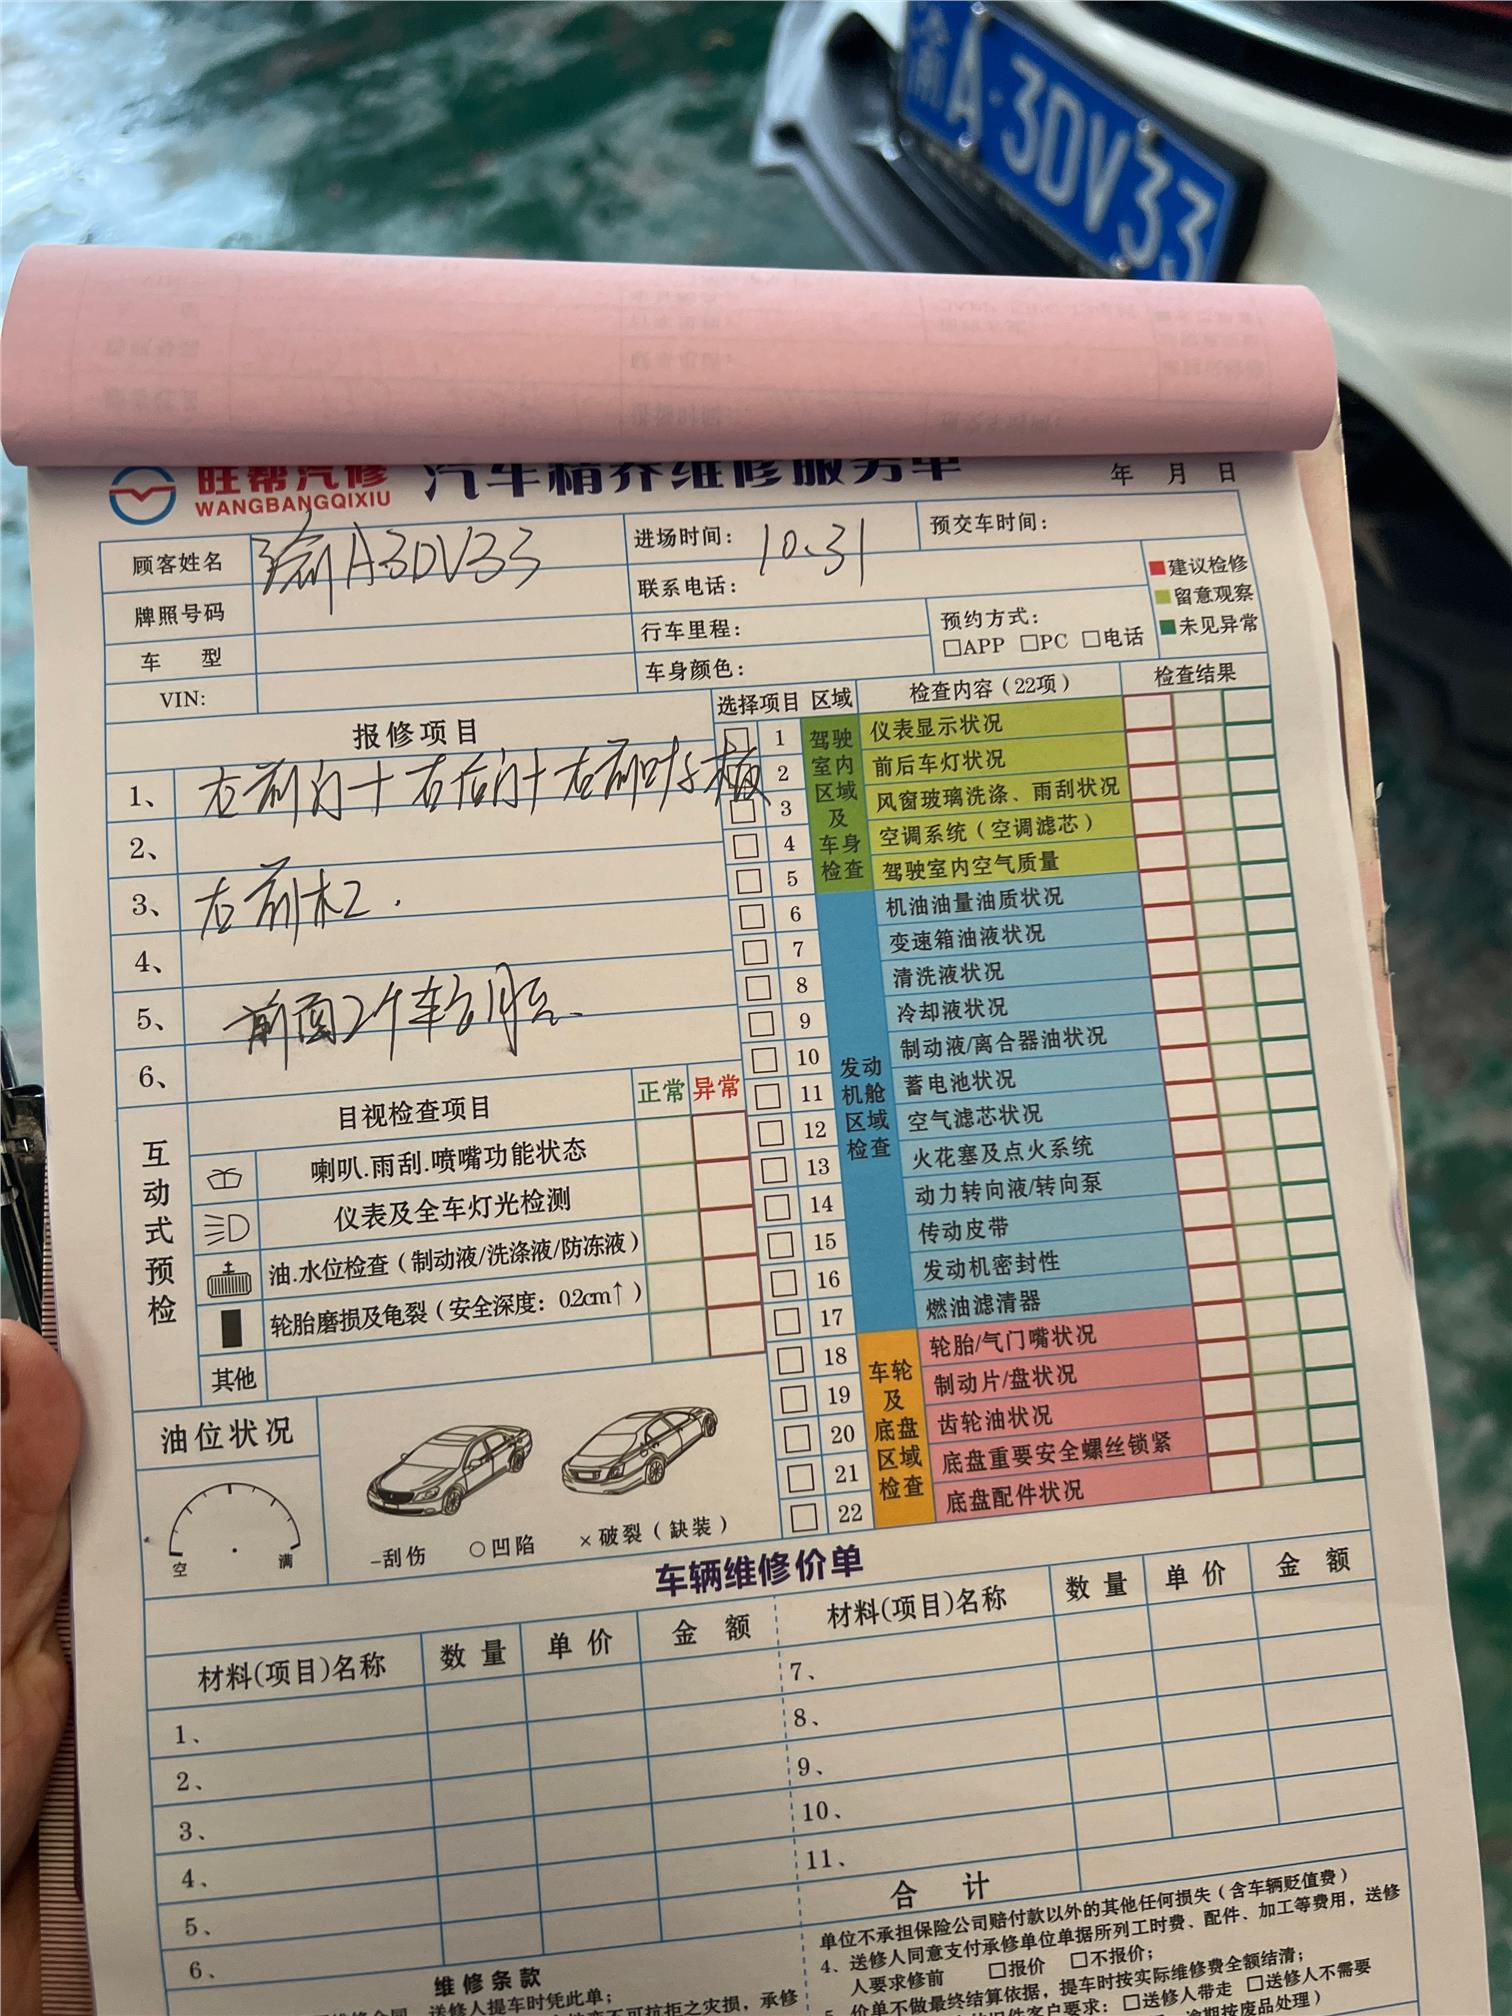 渝A·3DV33
旺帮汽修
WANGBANGQIXIU
汽车精养维修服务单
年 月 日
顾客姓名
渝A3DV33
进场时间: 10.31
预交车时间:
牌照号码
联系电话:
车 型
行车里程:
预约方式:
□APP □PC □电话
VIN:
车身颜色:
建议检修
留意观察
未见异常
报修项目
1、右前门+右后门+右前叶子板
2、
3、右前杠.
4、
5、前面2个轮胎.
6、
选择项目 区域 检查内容(22项) 检查结果
驾驶室内区域及车身检查
1 仪表显示状况
2 前后车灯状况
3 风窗玻璃洗涤、雨刮状况
4 空调系统(空调滤芯)
5 驾驶室内空气质量
发动机舱区域检查
6 机油油量油质状况
7 变速箱油液状况
8 清洗液状况
9 冷却液状况
10 制动液/离合器油状况
11 蓄电池状况
12 空气滤芯状况
13 火花塞及点火系统
14 动力转向液/转向泵
15 传动皮带
16 发动机密封性
17 燃油滤清器
车轮及底盘区域检查
18 轮胎/气门嘴状况
19 制动片/盘状况
20 齿轮油状况
21 底盘重要安全螺丝锁紧
22 底盘配件状况
互动式预检
目视检查项目 正常 异常
喇叭.雨刮.喷嘴功能状态
仪表及全车灯光检测
油.水位检查(制动液/洗涤液/防冻液)
轮胎磨损及龟裂(安全深度: 0.2cm↑)
其他
油位状况
空 满
-刮伤 ○凹陷 ×破裂(缺装)
车辆维修价单
材料(项目)名称 数量 单价 金额 材料(项目)名称 数量 单价 金额
1、
2、
3、
4、
5、
6、
7、
8、
9、
10、
11、
合 计
维修条款
送修人提车时凭此单;
不可抗拒之灾损,承修
单位不承担保险公司赔付款以外的其他任何损失(含车辆贬值费)
4、送修人同意支付承修单位单据所列工时费、配件、加工等费用,送修
人要求修前 □报价 □不报价;
价单不做最终结算依据,提车时按实际维修费全额结清;
旧件客户要求: □送修人带走 □送修人不需要
逾期按废品处理)